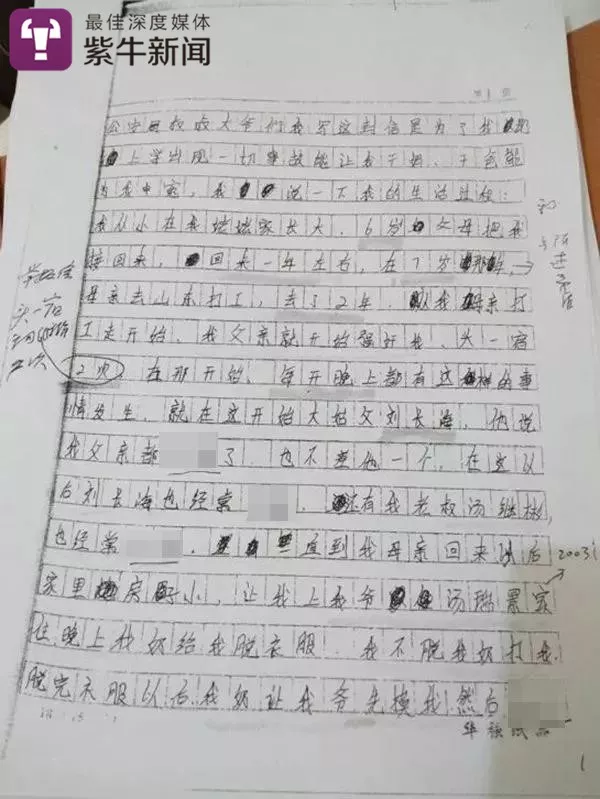 最佳深度媒体
紫牛新闻
第1页
公安局叔叔大爷们我写这封信是为了我
上学出现一切事故能让我干妈、干爸能
为我申冤，我说一下我的生活过程：
我从小在我姥姥家长大，6岁父母把我
接回来，回来一年左右，在7岁那年，
母亲去山东打工，去了2年．从我母亲打
工走开始，我父亲就开始强奸我，头一宿
2次，在那开始，每天晚上都有这样的事
情发生．就在这开始大姑父刘长海，他说
我父亲都 了．也不差他一个，在这以
后刘长海也经常 ．还有我老叔汤继彬，
也经常 ．一直到我母亲回来以后
2003
家里房子小，让我上我爷汤瑞景家
住，晚上我奶给我脱衣服．我不脱我奶打我．
脱完衣服以后我奶让我爷先摸我然后
头一宿
2次
1